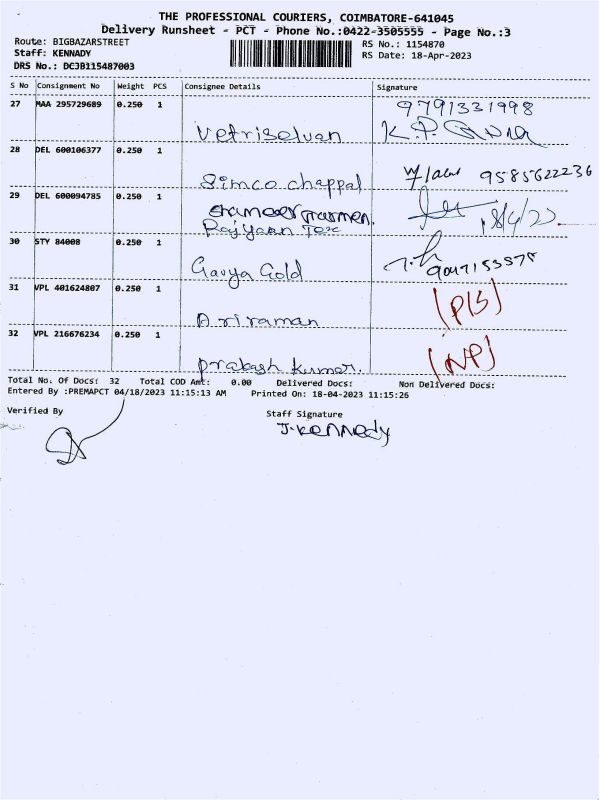 THE PROFESSIONAL COURIERS, COIMBATORE-641045
Delivery Runsheet - PCT - Phone No.:0422-3505555 - Page No.:3
Route: BIGBAZARSTREET RS No.: 1154870
Staff: KENNADY RS Date: 18-Apr-2023
DRS No.: DCJB115487003
S No Consignment No Weight PCS Consignee Details Signature
27 MAA 295729689 0.250 1 9791331998
Vetriselvan K.P.
28 DEL 600106377 0.250 1
Simco chappal 9585622236
29 DEL 600094785 0.250 1
Rajyaan Tex
30 STY 84008 0.250 1
Gavya Gold
31 VPL 401624807 0.250 1
Ariraman (P/S)
32 VPL 216676234 0.250 1
Prakash kumar. (NP)
Total No. Of Docs: 32 Total COD Amt: 0.00 Delivered Docs: Non Delivered Docs:
Entered By :PREMAPCT 04/18/2023 11:15:13 AM Printed On: 18-04-2023 11:15:26
Verified By Staff Signature
J.Kennedy